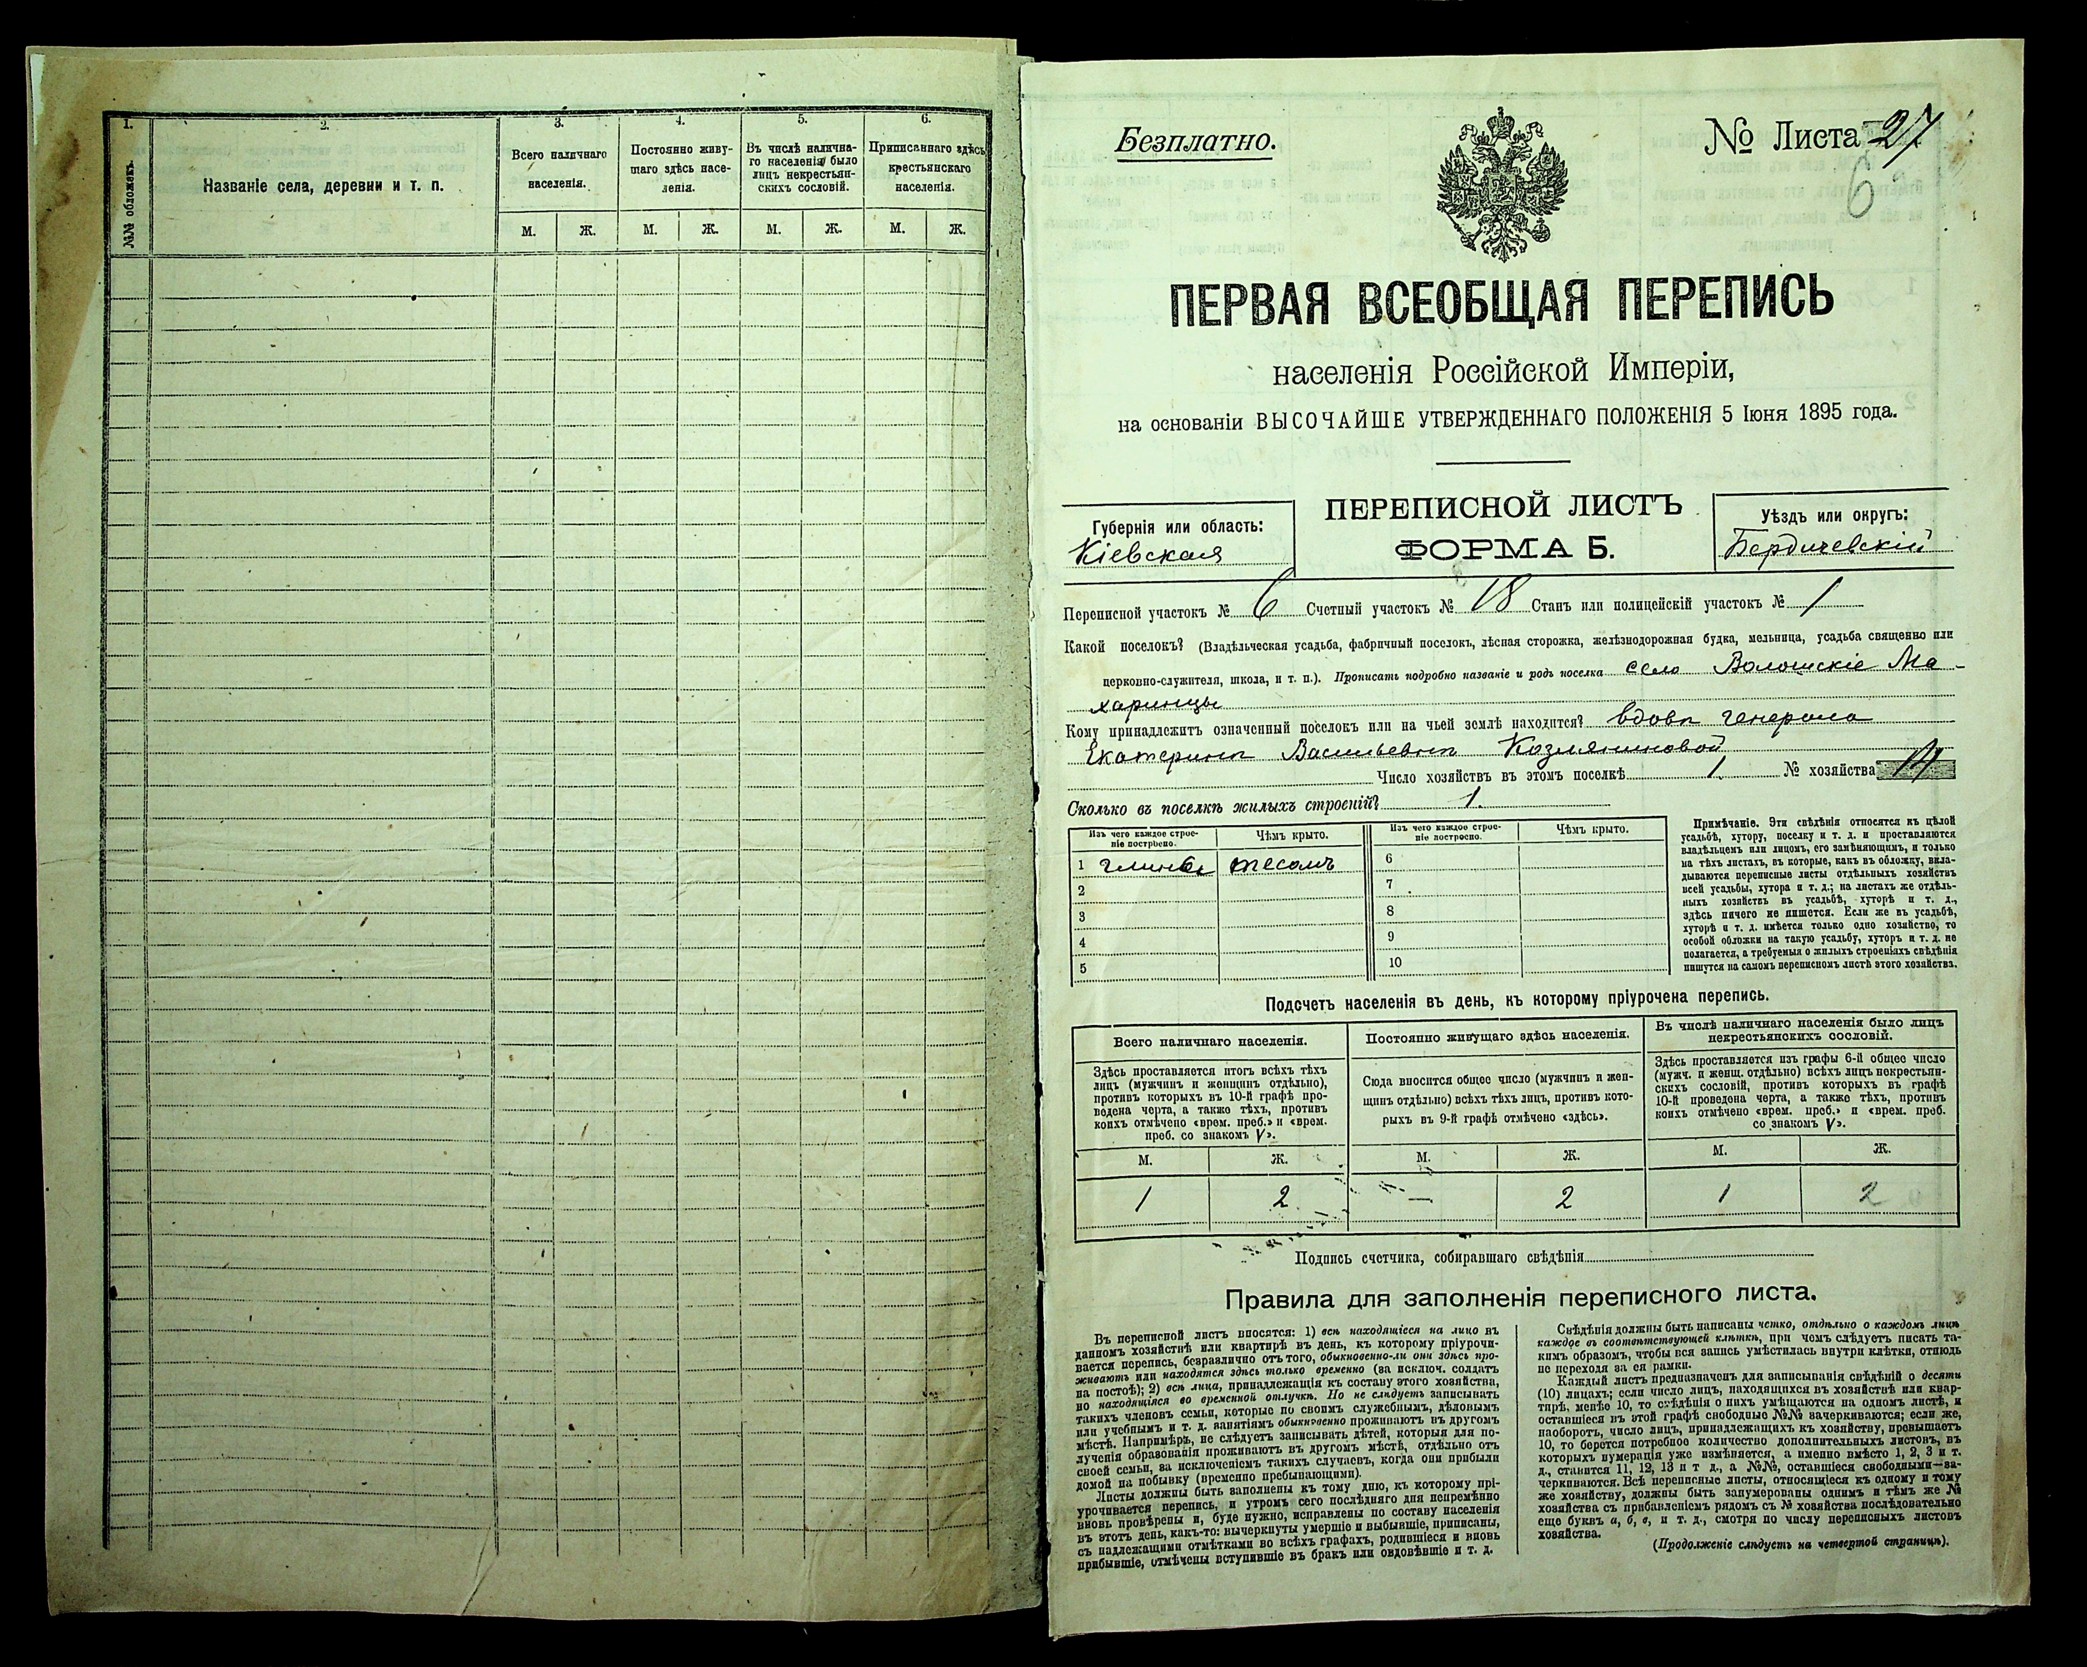 1.
2.
3.
4.
5.
6.
№№ обложекъ.
Названіе села, деревни и т. п.
Всего наличнаго
населенія.
Постоянно живу-
щаго здѣсь насе-
ленія.
Въ числѣ налична-
го населенія было
лицъ некрестьян-
скихъ сословій.
Приписаннаго здѣсь
крестьянскаго
населенія.
М. Ж. М. Ж. М. Ж. М. Ж.
Безплатно.
№ Листа 27
6
ПЕРВАЯ ВСЕОБЩАЯ ПЕРЕПИСЬ
населенія Россійской Имперіи,
на основаніи ВЫСОЧАЙШЕ УТВЕРЖДЕННАГО ПОЛОЖЕНІЯ 5 Іюня 1895 года.
Губернія или область:
Кіевская
ПЕРЕПИСНОЙ ЛИСТЪ
ФОРМА Б.
Уѣздъ или округъ:
Бердичевскій
Переписной участокъ № 6 Счетный участокъ № 18 Станъ или полицейскій участокъ № 1
Какой поселокъ? (Владѣльческая усадьба, фабричный поселокъ, лѣсная сторожка, желѣзнодорожная будка, мельница, усадьба священно или
церковно-служителя, школа, и т. п.). Прописать подробно названіе и родъ поселка село Волошскіе Ма-
харинцы
Кому принадлежитъ означенный поселокъ или на чьей землѣ находится? вдовѣ генерала
Екатеринѣ Васильевнѣ Козляниновой
Число хозяйствъ въ этомъ поселкѣ 1. № хозяйства 14
Сколько въ поселкѣ жилыхъ строеній? 1.
Изъ чего каждое строе-
ніе построено.
Чѣмъ крыто.
Изъ чего каждое строе-
ніе построено.
Чѣмъ крыто.
1 глины тесомъ
2
3
4
5
6
7
8
9
10
Примѣчаніе. Эти свѣдѣнія относятся къ цѣлой
усадьбѣ, хутору, поселку и т. д. и проставляются
владѣльцемъ или лицомъ, его замѣняющимъ, и только
на тѣхъ листахъ, въ которые, какъ въ обложку, вкла-
дываются переписные листы отдѣльныхъ хозяйствъ
всей усадьбы, хутора и т. д.; на листахъ же отдѣль-
ныхъ хозяйствъ въ усадьбѣ, хуторѣ и т. д.,
здѣсь ничего не пишется. Если же въ усадьбѣ,
хуторѣ и т. д. имѣется только одно хозяйство, то
особой обложки на такую усадьбу, хуторъ и т. д. не
полагается, а требуемыя о жилыхъ строеніяхъ свѣдѣнія
пишутся на самомъ переписномъ листѣ этого хозяйства.
Подсчетъ населенія въ день, къ которому пріурочена перепись.
Всего наличнаго населенія.
Здѣсь проставляется итогъ всѣхъ тѣхъ
лицъ (мужчинъ и женщинъ отдѣльно),
противъ которыхъ въ 10-й графѣ про-
ведена черта, а также тѣхъ, противъ
коихъ отмѣчено «врем. преб.» и «врем.
преб. со знакомъ V».
Постоянно живущаго здѣсь населенія.
Сюда вносится общее число (мужчинъ и жен-
щинъ отдѣльно) всѣхъ тѣхъ лицъ, противъ кото-
рыхъ въ 9-й графѣ отмѣчено «здѣсь».
Въ числѣ наличнаго населенія было лицъ
некрестьянскихъ сословій.
Здѣсь проставляется изъ графы 6-й общее число
(мужч. и женщ. отдѣльно) всѣхъ лицъ некрестьян-
скихъ сословій, противъ которыхъ въ графѣ
10-й проведена черта, а также тѣхъ, противъ
коихъ отмѣчено «врем. преб.» и «врем. преб.
со знакомъ V».
М. Ж. М. Ж. М. Ж.
1 2 — 2 1 2
Подпись счетчика, собиравшаго свѣдѣнія
Правила для заполненія переписного листа.
Въ переписной листъ вносятся: 1) всѣ находящіеся на лицо въ
данномъ хозяйствѣ или квартирѣ въ день, къ которому пріурочи-
вается перепись, безразлично отъ того, обыкновенно-ли они здѣсь про-
живаютъ или находятся здѣсь только временно (за исключ. солдатъ
на постоѣ); 2) всѣ лица, принадлежащія къ составу этого хозяйства,
но находящіяся во временной отлучкѣ. Но не слѣдуетъ записывать
такихъ членовъ семьи, которые по своимъ служебнымъ, дѣловымъ
или учебнымъ и т. д. занятіямъ обыкновенно проживаютъ въ другомъ
мѣстѣ. Напримѣръ, не слѣдуетъ записывать дѣтей, которыя для по-
лученія образованія проживаютъ въ другомъ мѣстѣ, отдѣльно отъ
своей семьи, за исключеніемъ такихъ случаевъ, когда они прибыли
домой на побывку (временно пребывающими).
Листы должны быть заполнены къ тому дню, къ которому прі-
урочивается перепись, и утромъ сего послѣдняго дня непремѣнно
вновь провѣрены и, буде нужно, исправлены по составу населенія
въ этотъ день, какъ-то: вычеркнуты умершіе и выбывшіе, приписаны,
съ надлежащими отмѣтками во всѣхъ графахъ, родившіеся и вновь
прибывшіе, отмѣчены вступившіе въ бракъ или овдовѣвшіе и т. д.
Свѣдѣнія должны быть написаны четко, отдѣльно о каждомъ лицѣ
каждое въ соотвѣтствующей клѣткѣ, при чемъ слѣдуетъ писать та-
кимъ образомъ, чтобы вся запись умѣстилась внутри клѣтки, отнюдь
не переходя за ея рамки.
Каждый листъ предназначенъ для записыванія свѣдѣній о десяти
(10) лицахъ; если число лицъ, находящихся въ хозяйствѣ или квар-
тирѣ, менѣе 10, то свѣдѣнія о нихъ умѣщаются на одномъ листѣ, и
оставшіеся въ этой графѣ свободные №№ зачеркиваются; если же,
наоборотъ, число лицъ, принадлежащихъ къ хозяйству, превышаетъ
10, то берется потребное количество дополнительныхъ листовъ, въ
которыхъ нумерація уже измѣняется, а именно вмѣсто 1, 2, 3 и т.
д., ставится 11, 12, 13 и т д., а №№, оставшіеся свободными—за-
черкиваются. Всѣ переписные листы, относящіеся къ одному и тому
же хозяйству, должны быть занумерованы однимъ и тѣмъ же №
хозяйства съ прибавленіемъ рядомъ съ № хозяйства послѣдовательно
еще буквъ а, б, в, и т. д., смотря по числу переписныхъ листовъ
хозяйства.
(Продолженіе слѣдуетъ на четвертой страницѣ).